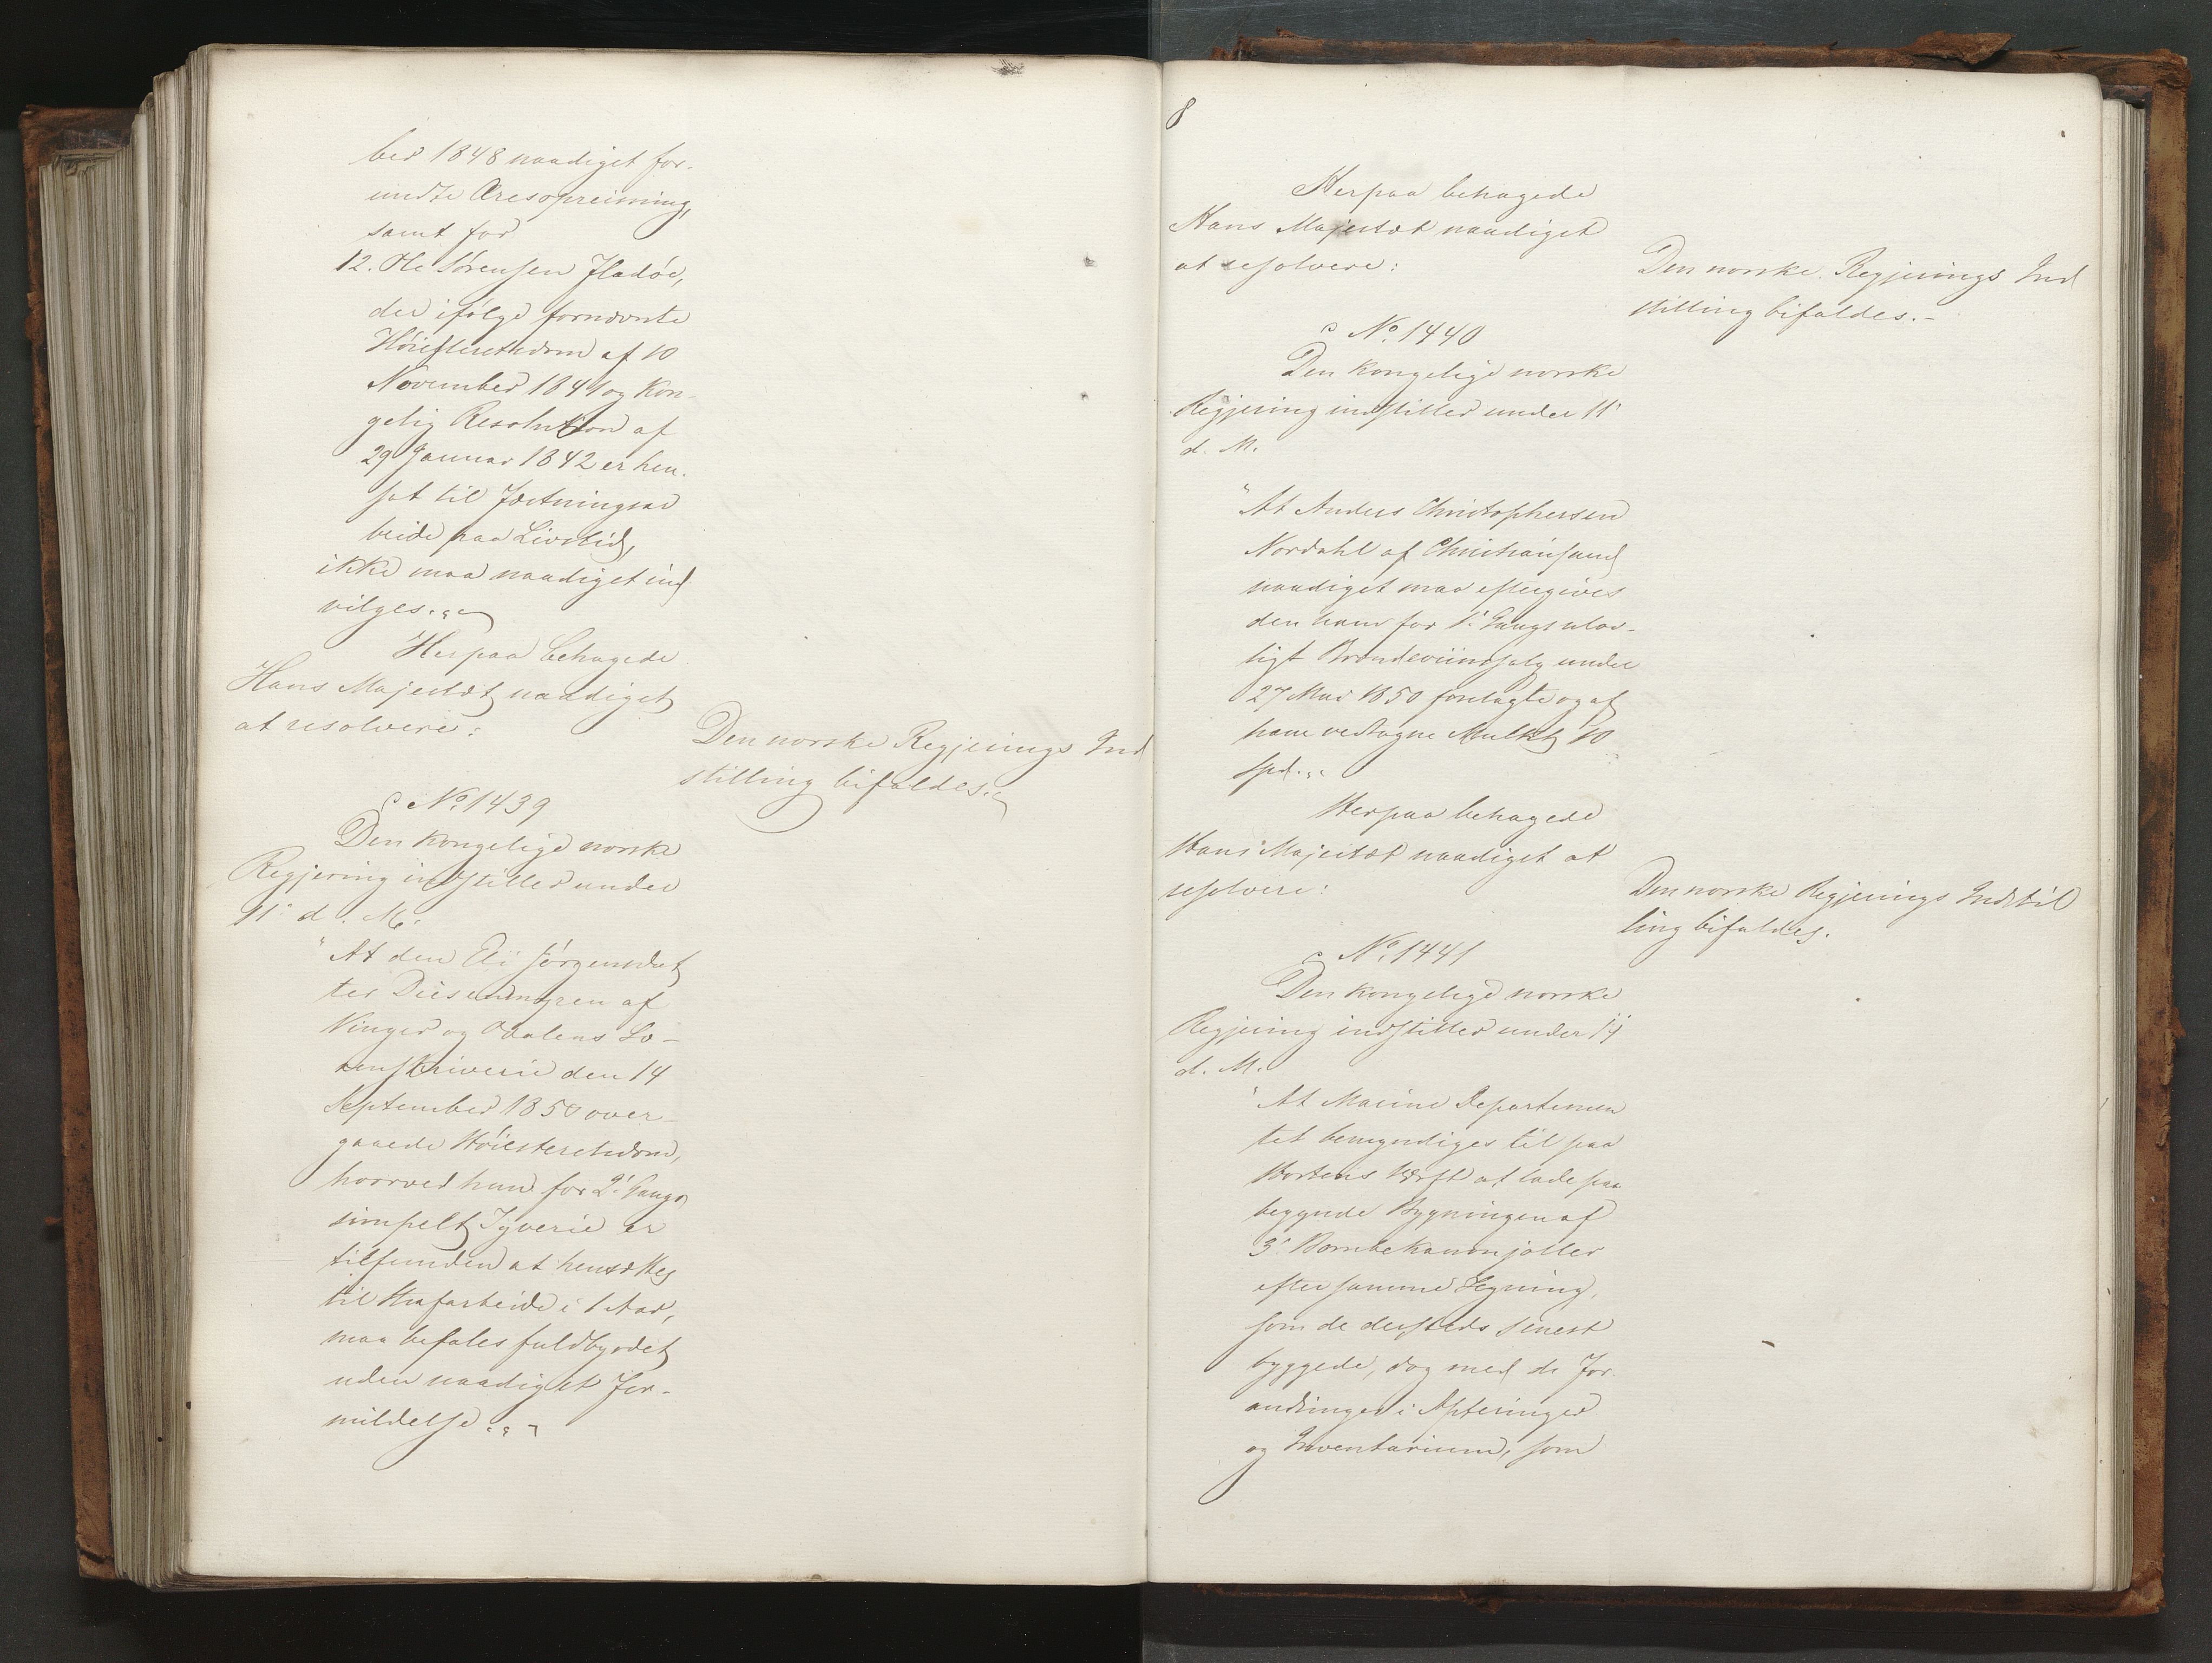 ber 1848 naadigst for-
undte Æresopreisning,
samt for
12. Ole Sörensen Fladöe,
der ifölge fornævnte
Höiesteretsdom af 10
November 1841 og Kon-
gelig Resolution af
29 Januar 1842 er hen-
sat til Fæstningsar
beide paa Livstid,
ikke maa naadigst ind
vilges."
Herpaa behagede
Hans Majestæt naadigst
at resolvere:
Den norske Regjerings Ind
stilling bifaldes.
No 1439
Den kongelige norske
Regjering indstiller under
11' d. M.
"At den Eli Jörgensdat
ter Diesenmyren af
Vinger og Odalens So-
renskriverie den 14
September 1850 over-
gaaede Höiesteretsdom,
hvorved hun for 2' Gangs
simpelt Tyverie er
tilfunden at hensættes
til Strafarbeide i 1 Aar,
maa befales fuldbyrdet
uden naadigst For-
mildelse."
8
Herpaa behagede
Hans Majestæt naadigst
at resolvere:
Den norske Regjerings Ind
stilling bifaldes.-
No 1440
Den kongelige norske
Regjering indstiller under 11'
d. M.
"At Anders Christophersen
Nordahl af Christiansand
naadigst maa eftergives
den ham for 1' Gangs ulov-
ligt Brændeviinssalg under
27 Mai 1850 forelagte og af
ham vedtagne Mulkt 10
Spd."
Herpaa behagede
Hans Majestæt naadigst at
resolvere:
Den norske Regjerings Indstil
ling bifaldes.
No 1441
Den kongelige norske
Regjering indstiller under 14
d. M.
"At Marine Departemen
tet bemyndiges til paa
Hortens Værft at lade paa
begynde Bygningen af
3' Bombekanonjoller
efter samme Tegning,
som de dersteds senest
byggede, dog med de For
andringer i Apteringer
og Inventarium, som